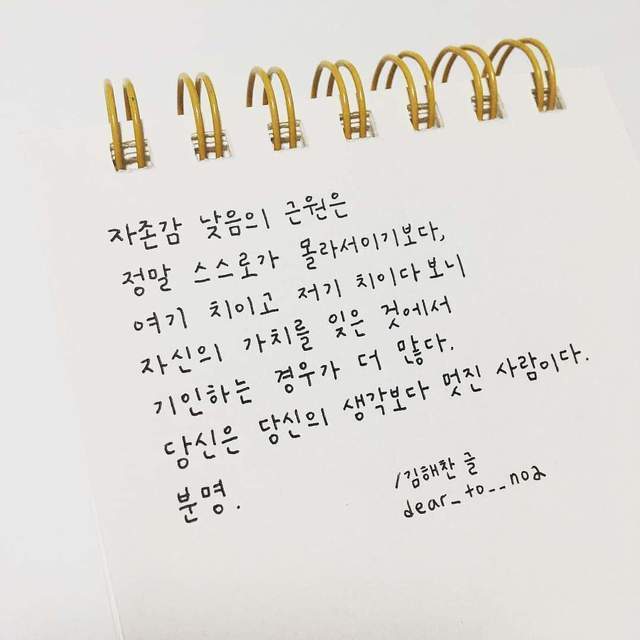 자존감 낮음의 근원은
정말 스스로가 몰라서이기보다,
여기 치이고 저기 치이다보니
자신의 가치를 잊은 것에서
기인하는 경우가 더 많다.
당신은 당신의 생각보다 멋진 사람이다.
분명.
/김해찬 글
dear_to__noa